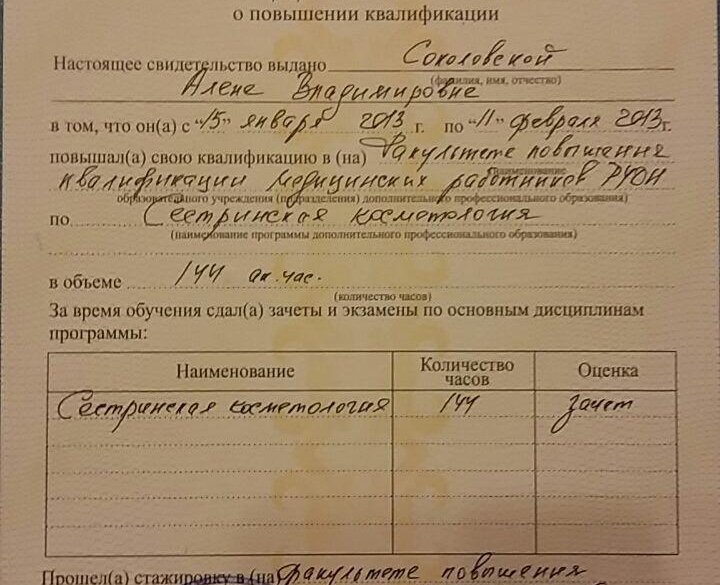 о повышении квалификации
Настоящее свидетельство выдано Соколовской
(фамилия, имя, отчество)
Алене Владимировне
в том, что он(а) с "15" января 2013 г. по "11" февраля 2013 г.
повышал(а) свою квалификацию в (на) Факультете повышения
(наименование
квалификации медицинских работников РУДН
образовательного учреждения (подразделения) дополнительного профессионального образования)
по Сестринская косметология
(наименование программы дополнительного профессионального образования)
в объеме 144 ак. час.
(количество часов)
За время обучения сдал(а) зачеты и экзамены по основным дисциплинам
программы:
Наименование Количество часов Оценка
Сестринская косметология 144 зачет
Прошел(а) стажировку в (на) факультете повышения